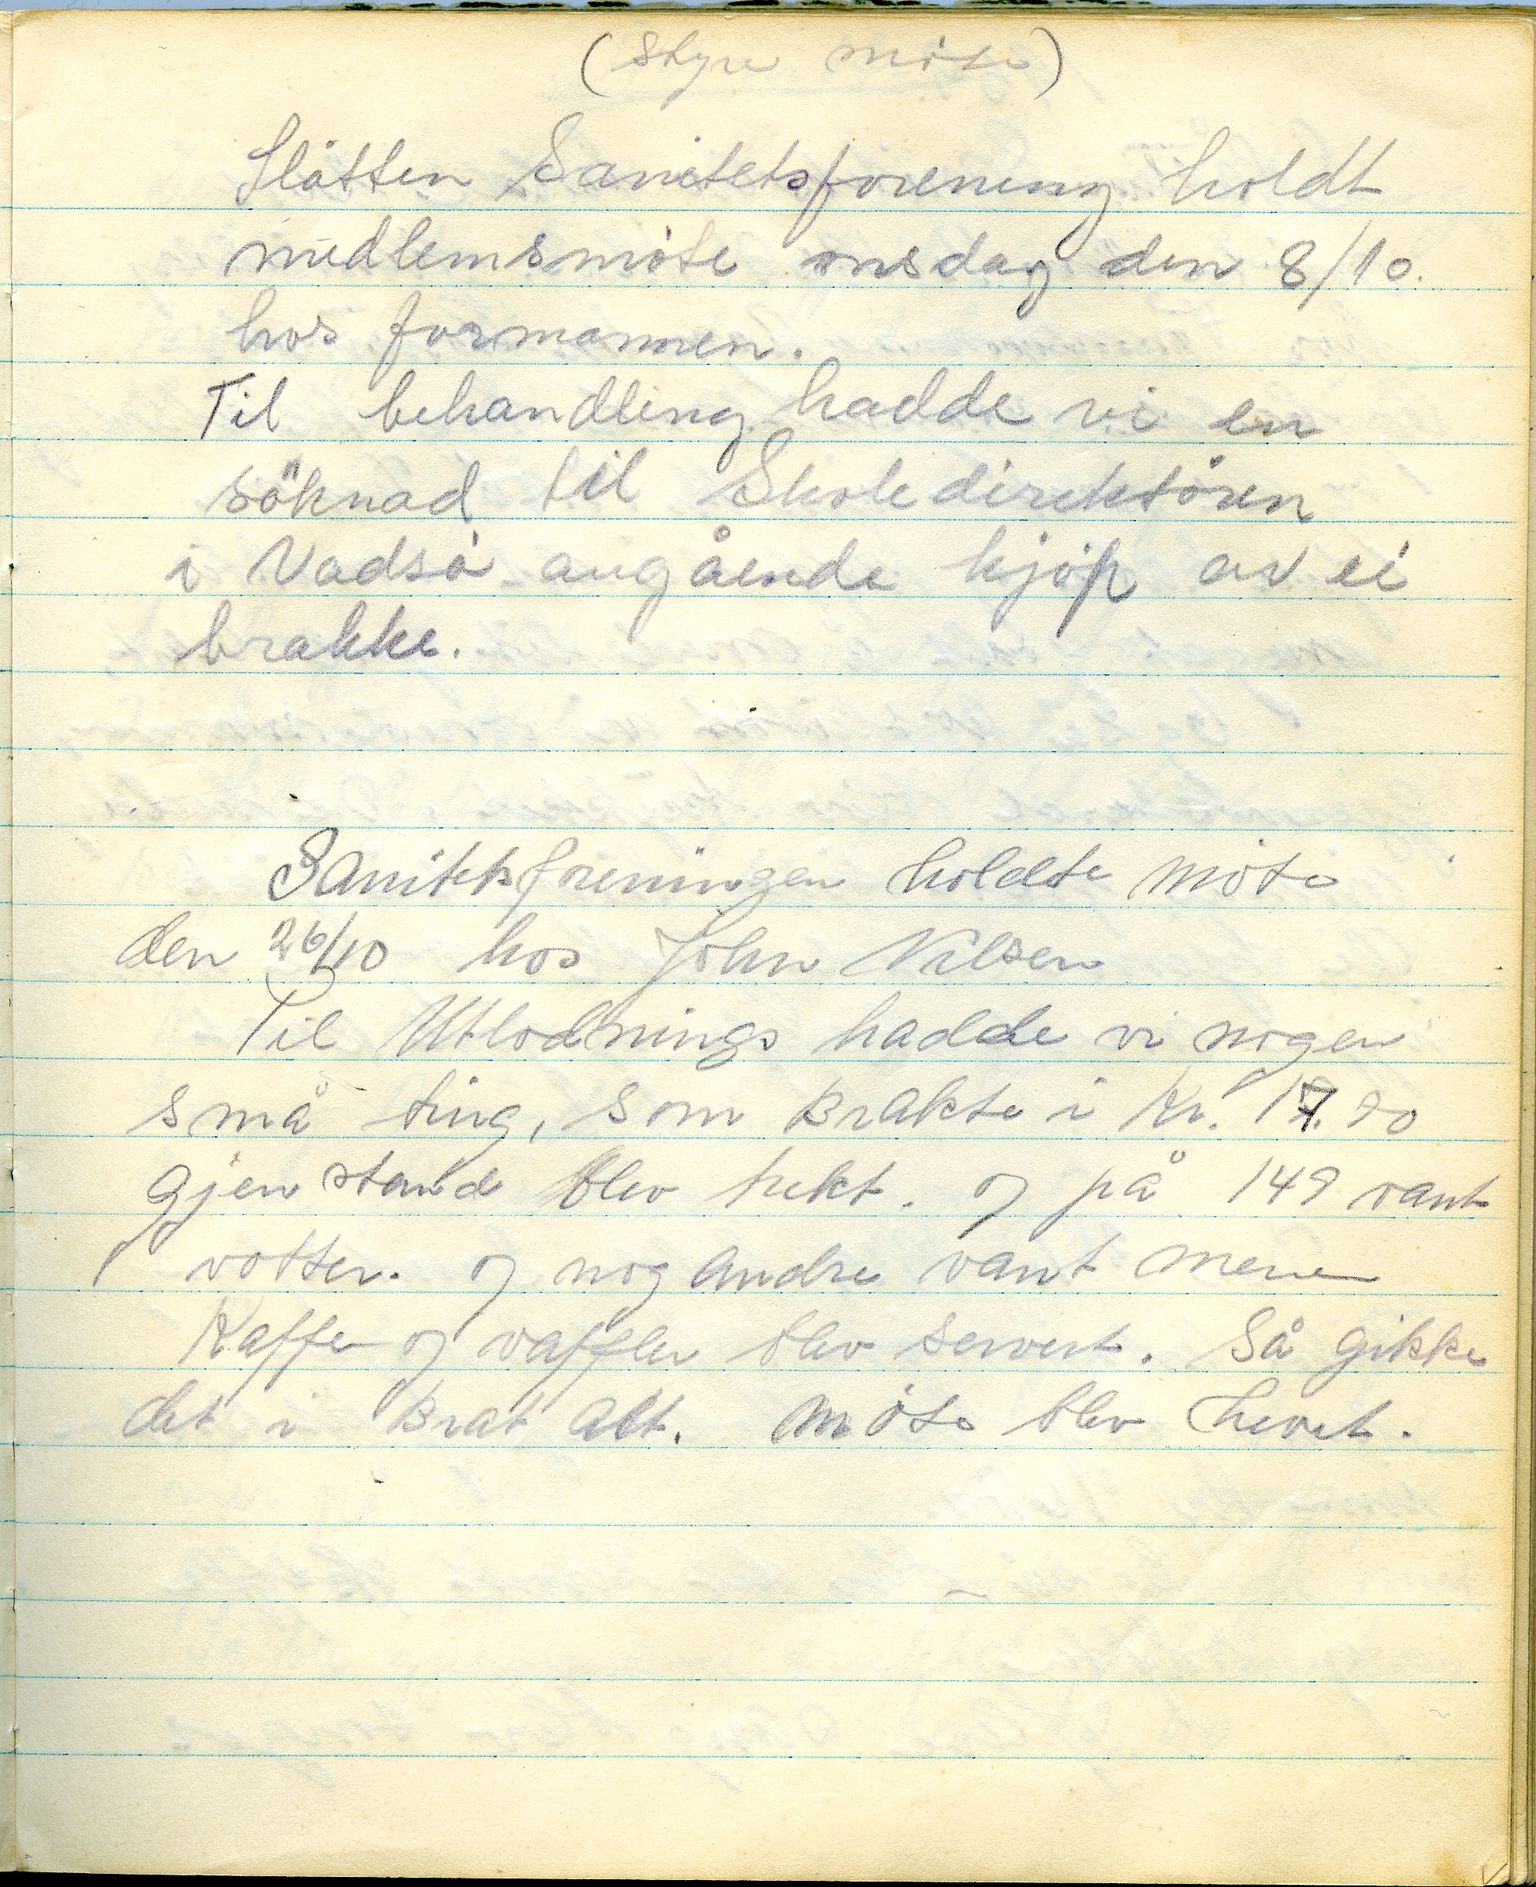 (styre møte)
Slåtten Sanitetsforening holdt
medlemsmøte onsdag den 8/10.
hos formannen.
Til behandling hadde vi en
söknad til Skoledirektøren
i Vadsø angående kjøp av ei
brakke.
Sanitetsforeningen holdte møte
den 26/10 hos John Nilsen
Til Utlodnings hadde vi nogen
små ting, som Brakte i Kr.
gjenstand blev trekt. og på 149 vant
1 votter. og nog andre vant mere
Kaffe og vafler blev servert. Så gikke
det i Brat alt. Møte blev hevet.